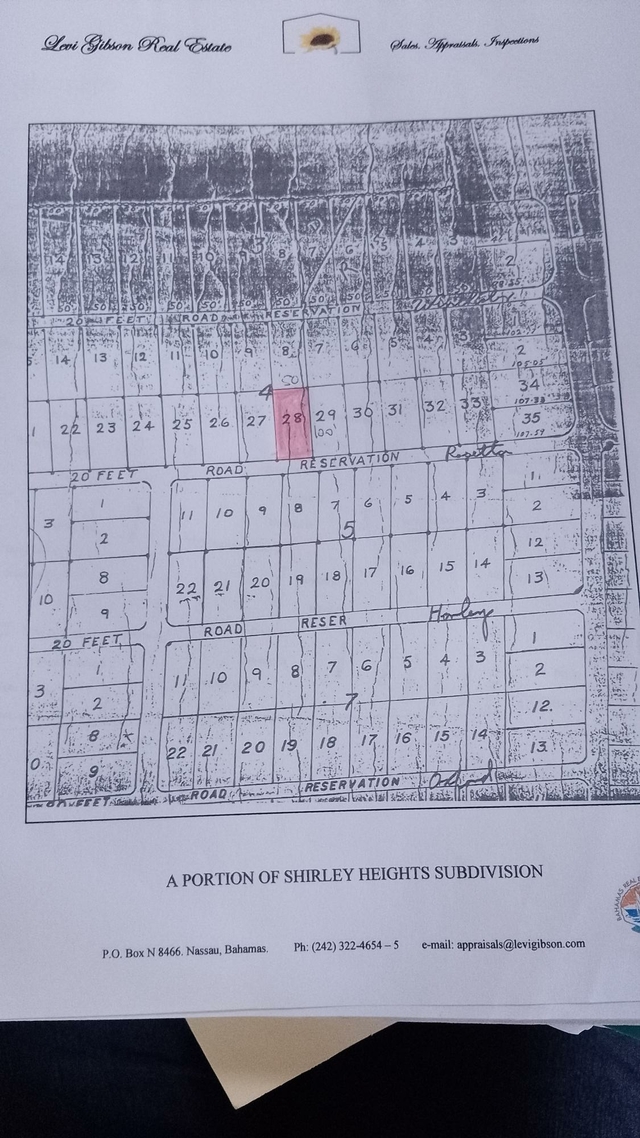 Levi Gibson Real Estate
Sales. Appraisals. Inspections
50 50 50 50 50 50 50 50 50
14 13 12 11 10 9 8 7 6 5 4 3
2
50 50 50 50 50 50 50 50 50
20 FEET ROAD RESERVATION
14 13 12 11 10 9 8 7 6 5 4 3 2
105.05
50
4
34
107.33
22 23 24 25 26 27 28 29 30 31 32 33 35
100
107.59
20 FEET ROAD RESERVATION
3 1 11 10 9 8 7 6 5 4 3 1
2 2
5
8 12
10 22 21 20 19 18 17 16 15 14 13
9
20 FEET ROAD RESER
3 1 11 10 9 8 7 6 5 4 3 1
2 2
7
8 12.
0 22 21 20 19 18 17 16 15 14 13
9
FEET ROAD RESERVATION
A PORTION OF SHIRLEY HEIGHTS SUBDIVISION
P.O. Box N 8466. Nassau, Bahamas. Ph: (242) 322-4654 – 5 e-mail: appraisals@levigibson.com